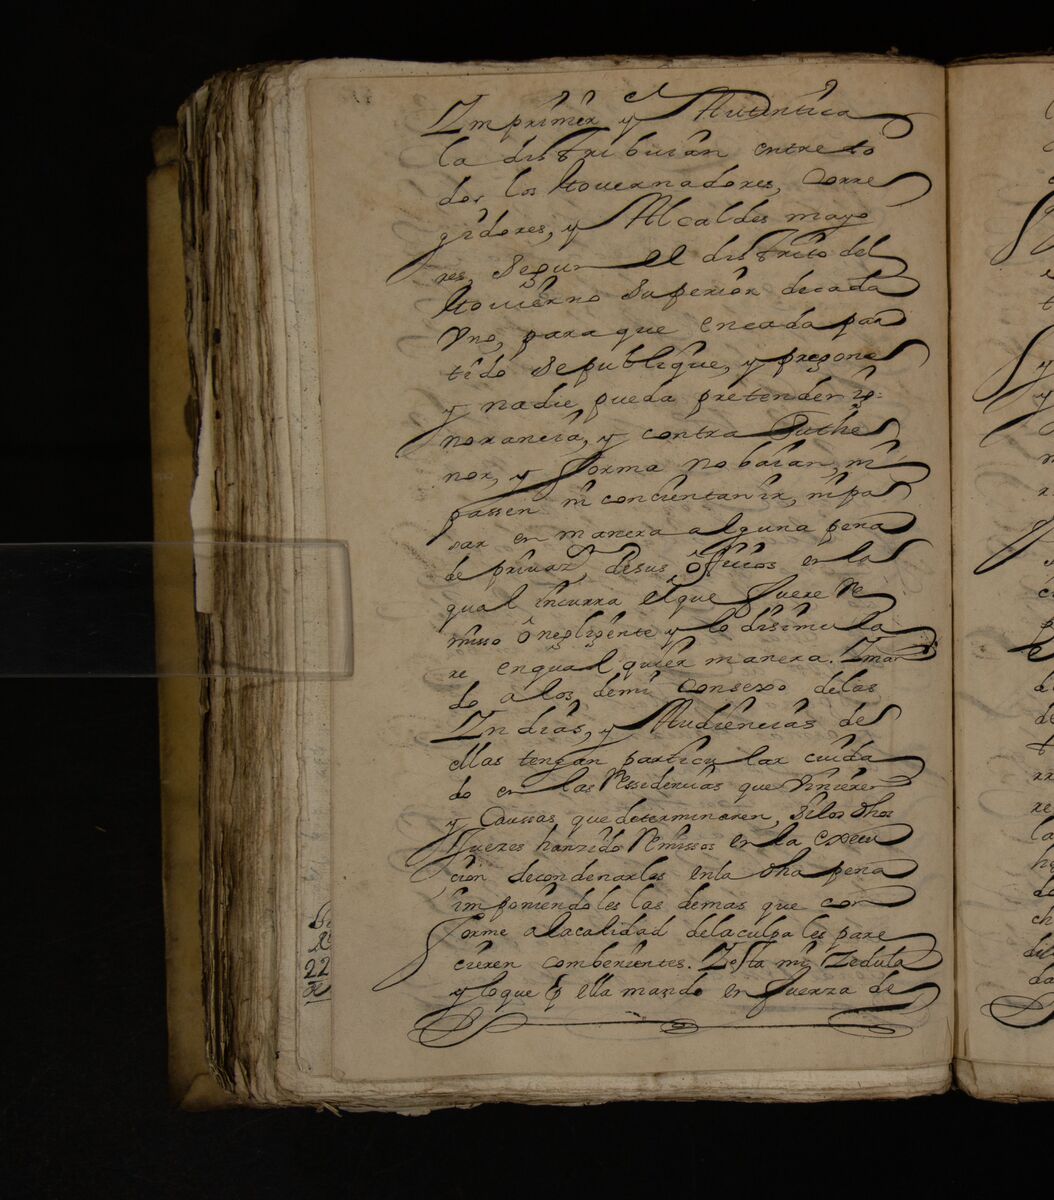 Imprimir y Autentica
la distribuian entre to
dos los Governadores, Corre
gidores, y Alcaldes mayo
res segun el distrito del
Govierno superior de cada
Uno, para que en cada par
tido se publique, y pregone
y nadie pueda pretender ig=
norancia, y contra suthe
nor, y forma no baian, ni
passen ni concientan ir, ni pa
sar en manera alguna pena
de privazn. desus ôfficios en la
qual incurra el que fuere Re
misso ô negligente y lo disimula
re en qual quier manera. Iman
do a los, de mi Consexo de las
Indias, y Audiencias de
ellas tengan particular cuida
do en las Ressidencias que Vinieren
y Caussas, que determinaren, silos dhos
Juezes han sido Remissos en la execu
cion de condenarlos en la dha pena
imponiendoles las demas que con
forme a la calidad de la culpa les pare
cieren combenientes. I esta mi Zedula
y lo que ê ella mando en fuerza de
22